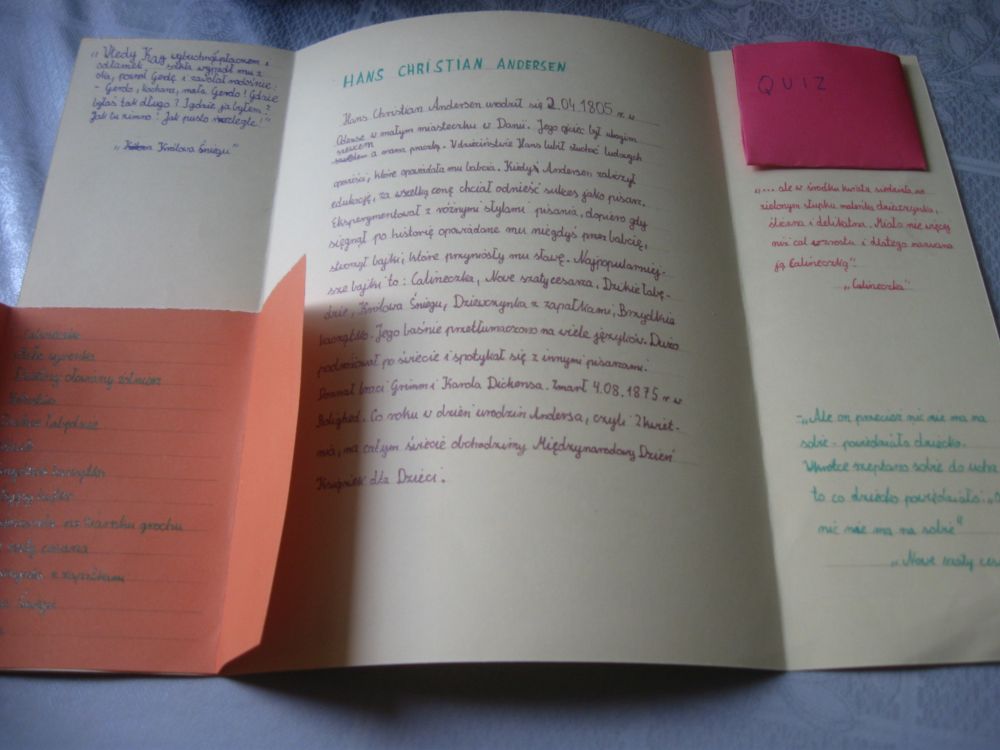 „Wtedy Kay wybuchnął płaczem i
odłamek szkła wypadł mu z
oka, poznał Gerdę i zawołał radośnie:
- Gerdo, kochana, mała Gerdo! Gdzie
byłaś tak długo? I gdzie ja byłem?
Jak tu zimno! Jak pusto i rozległe!"
„Królowa Śniegu"
HANS CHRISTIAN ANDERSEN
Hans Christian Andersen urodził się 2.04.1805 r. w
Odense w małym miasteczku w Danii. Jego ojciec był ubogim
szewcem a mama praczką. W dzieciństwie Hans lubił słuchać ludowych
opowieści, które opowiadała mu babcia. Kiedyś Andersen zakończył
edukację, za wszelką cenę chciał odnieść sukces jako pisarz.
Eksperymentował z różnymi stylami pisania, dopiero gdy
sięgnął po historię opowiadane mu niegdyś przez babcię,
stworzył bajki, które przyniosły mu sławę. Najpopularniej-
sze bajki to: Calineczka, Nowe szaty cesarza, Dzikie łabę-
dzie, Królowa Śniegu, Dziewczynka z zapałkami, Brzydkie
kaczątko. Jego baśnie przetłumaczono na wiele języków. Dużo
podróżował po świecie i spotykał się z innymi pisarzami.
Poznał braci Grimm i Karola Dickensa. Zmarł 4.08.1875 r. w
Rolighed. Co roku w dzień urodzin Andersa, czyli 2 kwiet-
nia, na całym świecie obchodzimy Międzynarodowy Dzień
Książki dla Dzieci.
QUIZ
„... ale w środku kwiatu siedziała na
zielonym słupku maleńka dziewczynka,
śliczna i delikatna. Miała nie więcej
niż cal wzrostu i dlatego nazwano
ją Calineczką".
„Calineczka"
„Ale on przecież nic nie ma na
sobie - powiedziało dziecko.
Wkrótce szeptano sobie do ucha
to co dziecko powiedziało.
nic nie ma na sobie"
„Nowe szaty
Calineczka
Dzielny ołowiany żołnierz
Dzikie łabędzie
na ziarnku grochu
szaty cesarza
z zapałkami
Śniegu